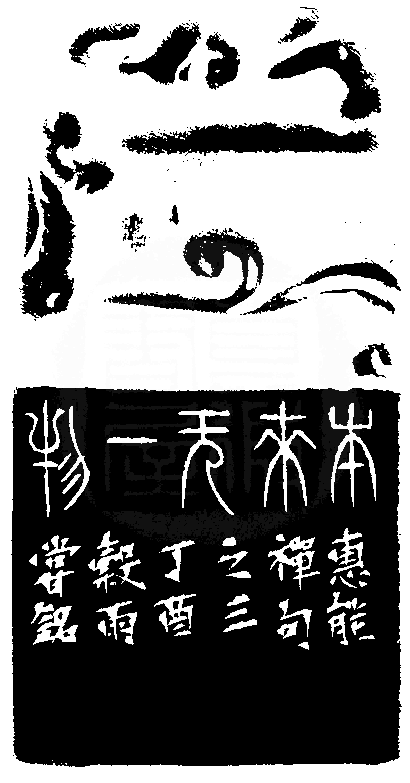 本來无一物
惠能
禪句
之三
丁酉
穀雨
嘗銘